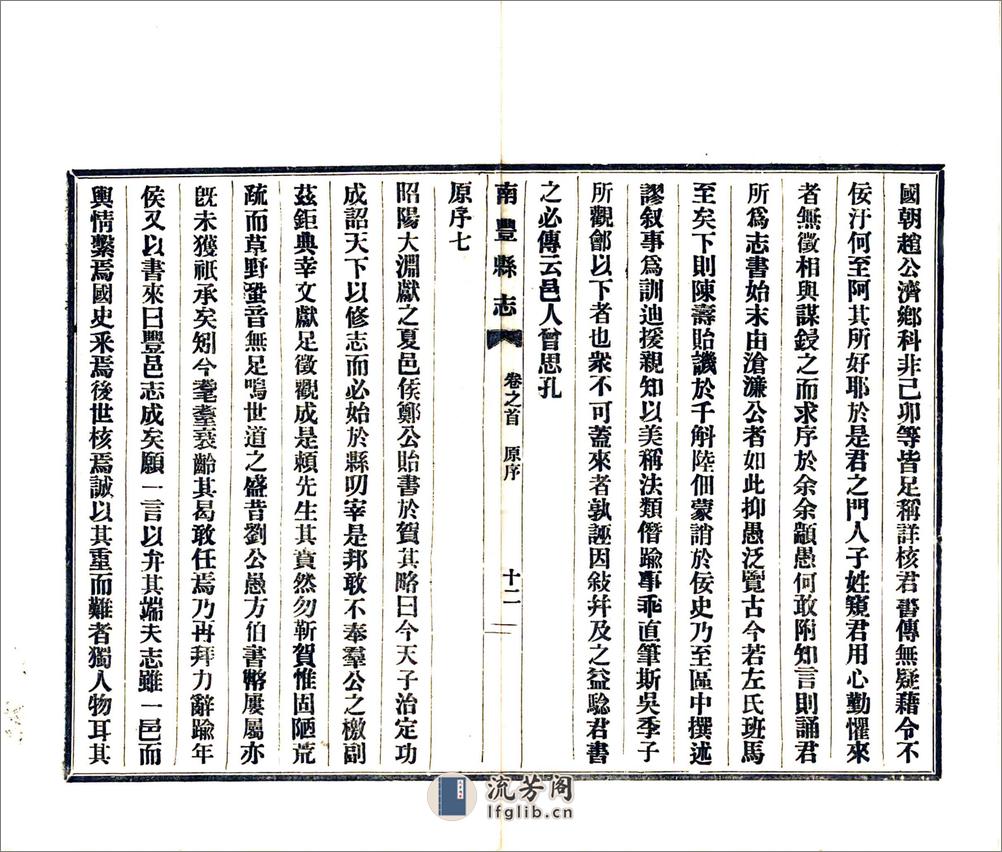 國朝趙公濟鄉科非己卯等皆足稱詳核君書傳無疑藉令不
佞汙何至阿其所好耶於是君之門人子姓窺君用心勤懼來
者無徵相與謀鋟之而求序於余余顓愚何敢附知言則誦君
所爲志書始末由滄濂公者如此抑愚泛覽古今若左氏班馬
至矣下則陳壽貽譏於千斛陸佃蒙誚於佞史乃至區中撰述
謬叙事爲訓迪援親知以美稱法類僭踰事乖直筆斯吳季子
所觀鄶以下者也衆不可蓋來者孰誣因敍幷及之益騐君書
之必傳云邑人曾思孔
南豐縣志 卷之首 原序 十二
原序七
昭陽大淵獻之夏邑侯鄭公貽書於賀其略曰今天子治定功
成詔天下以修志而必始於縣叨宰是邦敢不奉羣公之檄副
茲鉅典幸文獻足徵觀成是賴先生其賁然勿靳賀惟固陋荒
疏而草野蛩音無足鳴世道之盛昔劉公愚方伯書幣屢屬亦
旣未獲祇承矣矧今耄耋衰齡其曷敢任焉乃再拜力辭踰年
侯又以書來曰豐邑志成矣願一言以弁其端夫志雖一邑而
輿情繫焉國史釆焉後世核焉誠以其重而難者獨人物耳其
流芳阁
lfglib.cn